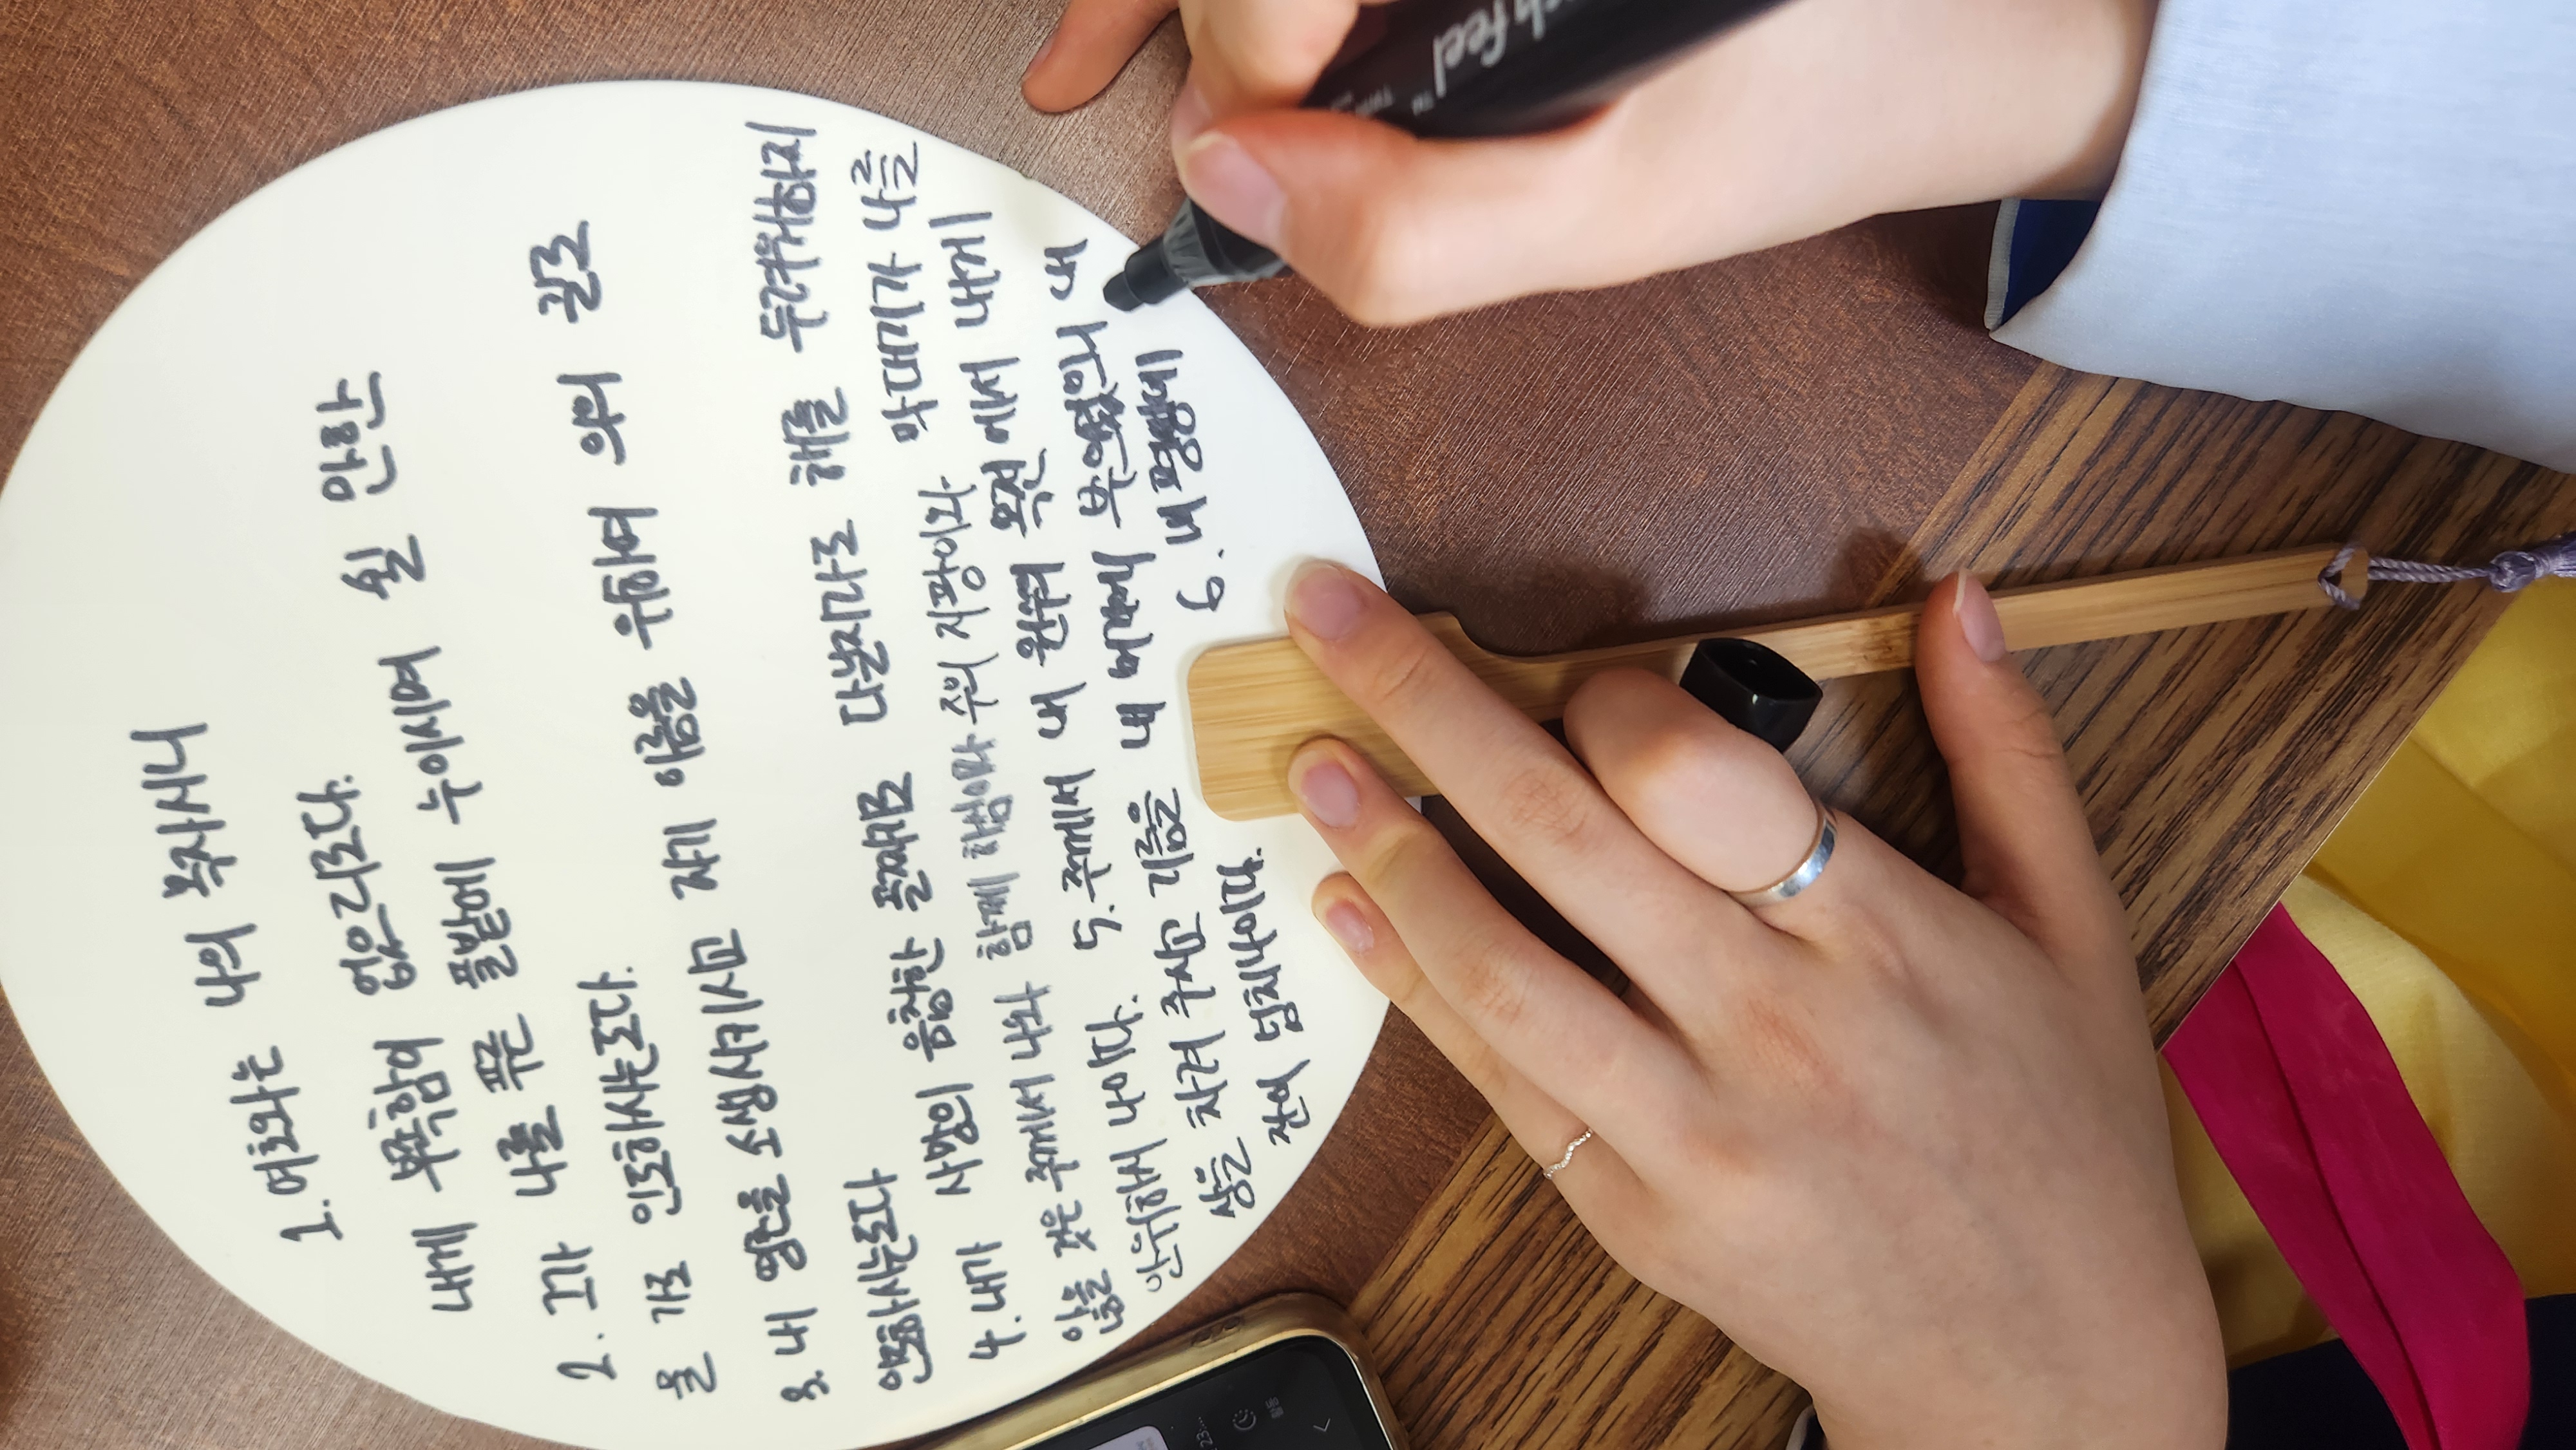 1. 여호와는 나의 목자시니
내게 부족함이 없으리로다.
2. 그가 나를 푸른 풀밭에 누이시며 쉴 만한
물 가로 인도하시는도다.
3. 내 영혼을 소생시키시고 자기 이름을 위하여 의의 길로
인도하시는도다
4. 내가 사망의 음침한 골짜기로 다닐지라도 해를 두려워하지
않을 것은 주께서 나와 함께 하심이라 주의 지팡이와 막대기가 나를
안위하시나이다. 5. 주께서 내 원수의 목전에서 내게
상을 차려 주시고 기름을 내 머리에 부으셨으니 내
잔이 넘치나이다. 6. 내 평생에
chfeel™